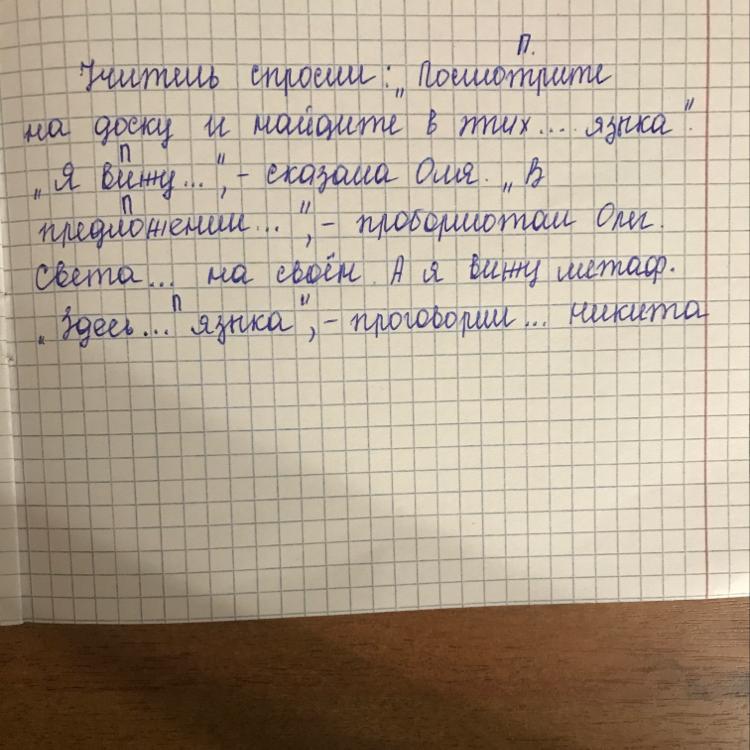 П.
Учитель спросил: „Посмотрите
на доску и найдите в этих... языка".
П
„Я вижу...", - сказала Оля. „В
П
предложении...", - пробормотал Олег.
Света... на своём. А я вижу метаф.
П
„Здесь... языка", - проговорил... Никита